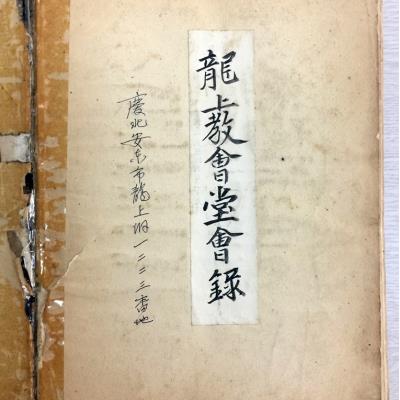 龍上敎會堂會錄
慶北安东市龍上洞一二二三番地